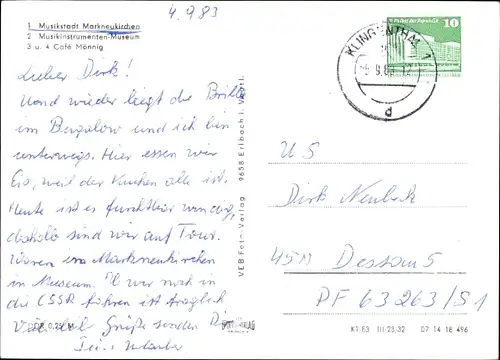 4.9.83
1 Musikstadt Markneukirchen
2 Musikinstrumenten-Museum
3 u. 4 Café Mönnig
Lieber Dirk!
Und wieder liegt die Brille
im Bungalow und ich bin
unterwegs. Hier essen wir
Eis, weil der Kuchen alle ist.
Heute ist es furchtbar windig,
deshalb sind wir auf Tour.
Waren in Markneukirchen
im Museum. Ob wir noch in
die ČSSR fahren ist fraglich
Viele liebe Grüße senden Dir
VEB Foto-Verlag 9658 Erlbach i. Vogtl.
KLINGENTHAL 1
10
US
Dirk
45M Dessau 5
PF 63263/S1
K1/83 III-23-32 07 14 18 496